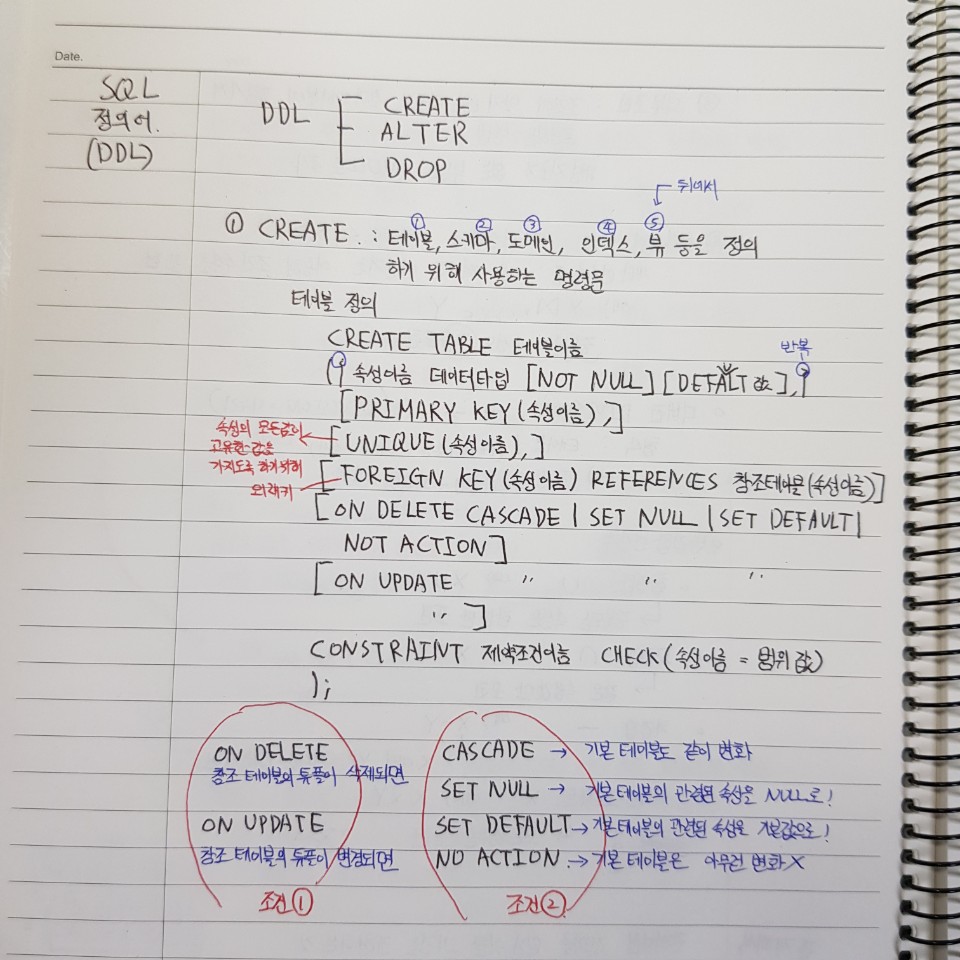 Date.
SQL
정의어.
(DDL)
DDL
CREATE
ALTER
DROP
뒤에서
① ② ③ ④ ⑤
① CREATE . : 테이블, 스키마, 도메인, 인덱스, 뷰 등을 정의
하기 위해 사용하는 명령문
테이블 정의
CREATE TABLE 테이블이름
반복
( 속성이름 데이터타입 [NOT NULL] [DEFALT 값],
[PRIMARY KEY(속성이름),]
[UNIQUE(속성이름),]
속성의 모든값이
고유한 값을
가지도록 하기위해
[FOREIGN KEY(속성이름) REFERENCES 참조테이블(속성이름)]
외래키
[ON DELETE CASCADE | SET NULL | SET DEFAULT |
NOT ACTION]
[ON UPDATE " " "
" ]
CONSTRAINT 제약조건이름 CHECK(속성이름 = 범위값)
);
ON DELETE
참조 테이블의 튜플이 삭제되면
ON UPDATE
참조 테이블의 튜플이 변경되면
조건①
CASCADE → 기본 테이블도 같이 변화
SET NULL → 기본테이블의 관련된 속성을 NULL로!
SET DEFAULT → 기본테이블의 관련된 속성을 기본값으로!
NO ACTION. → 기본 테이블은 아무런 변화 X
조건②